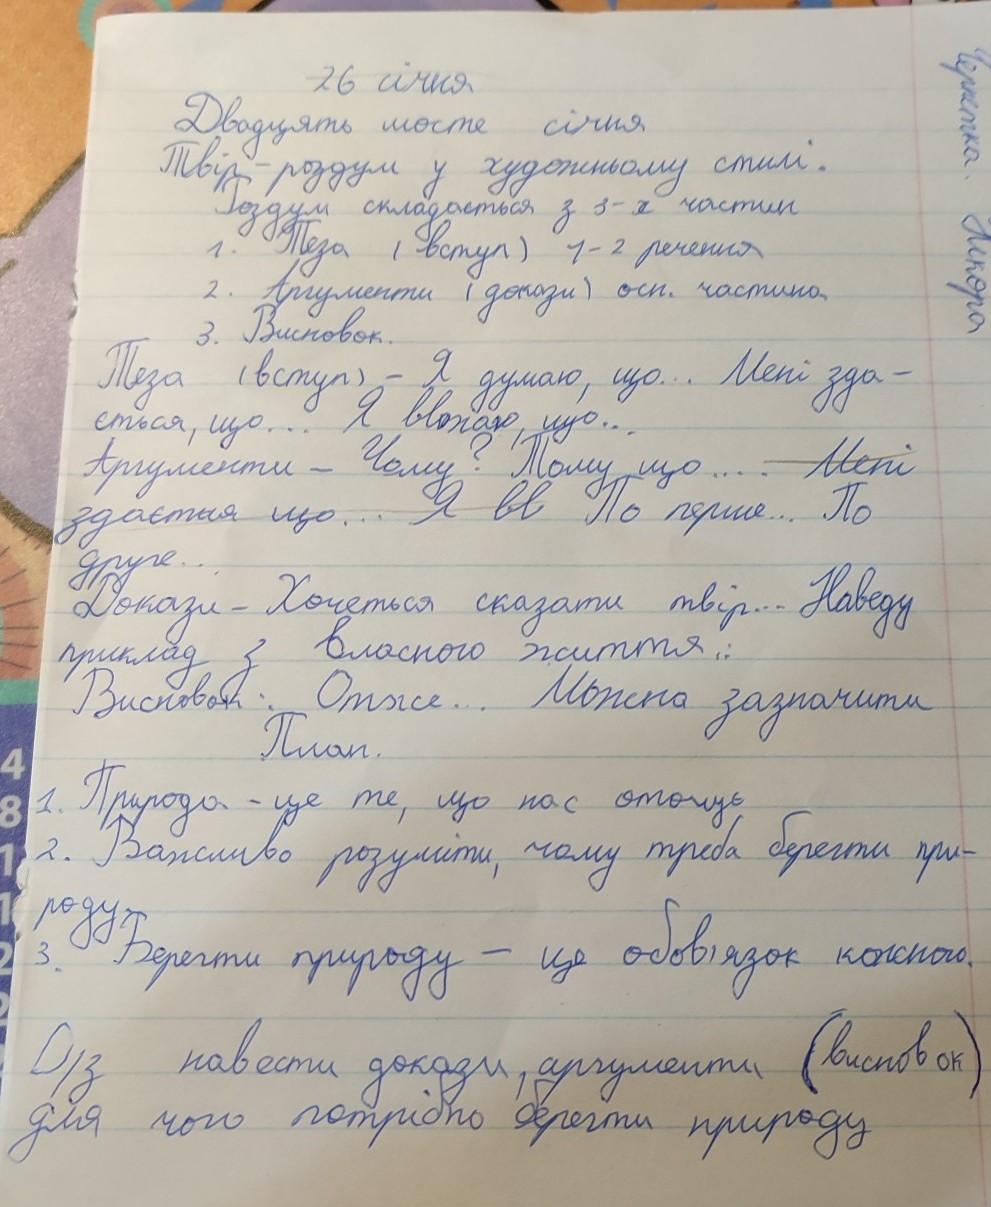 26 січня
Двадцять шосте січня
Твір-роздум у художньому стилі.
Роздум складається з 3-х частин
1. Теза (вступ) 1-2 речення
2. Аргументи (докази) осн. частина
3. Висновок.
Теза (вступ) - Я думаю, що... Мені зда-
ється, що... Я вважаю, що...
Аргументи - Чому? Тому що.... Мені
здається що... Я вв По перше... По
друге...
Докази - Хочеться сказати твір... Наведу
приклад з власного життя...
Висновок: Отже... Можна зазначити
План.
1. Природа - це те, що нас оточує
2. Важливо розуміти, чому треба берегти при-
роду.
3. Берегти природу - це обов'язок кожного.
Д/з навести докази, аргументи (висновок)
для чого потрібно берегти природу
Чернетка. Іскора